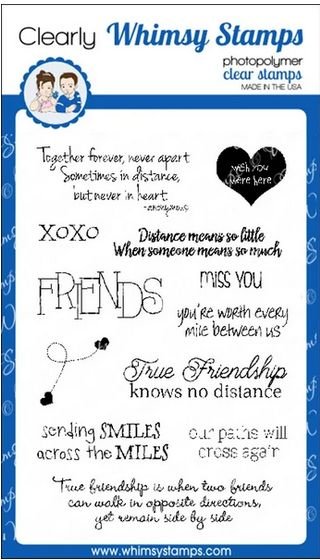 Clearly Whimsy Stamps
photopolymer
clear stamps
MADE IN THE USA
Together forever, never apart
Sometimes in distance,
but never in heart.
-anonymous
wish you
were here
XOXO
Distance means so little
When someone means so much
FRIENDS
miss you
you're worth every
mile between us
True Friendship
knows no distance
sending SMILES
across the MILES
our paths will
cross again
True friendship is when two friends
can walk in opposite directions,
yet remain side by side
www.whimsystamps.com